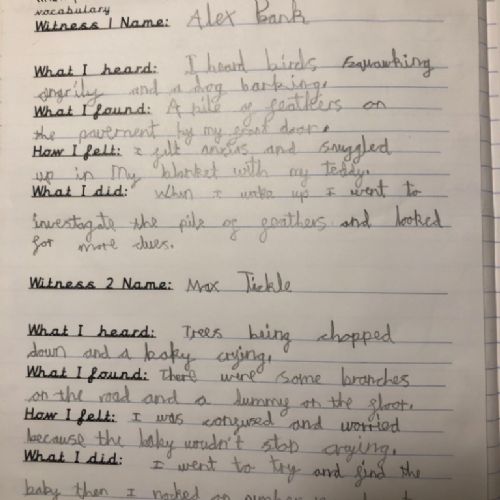 vocabulary
Witness 1 Name: Alex Bank
What I heard: I heard birds squawking
angrily and a dog barking.
What I found: A pile of feathers on
the pavement by my front door.
How I felt: I felt anxius and snuggled
up in my blanket with my teddy.
What I did: When I woke up I went to
investagate the pile of feathers and looked
for more clues.
Witness 2 Name: Max Tickle
What I heard: Trees being chopped
down and a baby crying.
What I found: There were some branches
on the road and a dummy on the floor.
How I felt: I was confused and worried
because the baby wouldn't stop crying.
What I did: I went to try and find the
baby then I on number